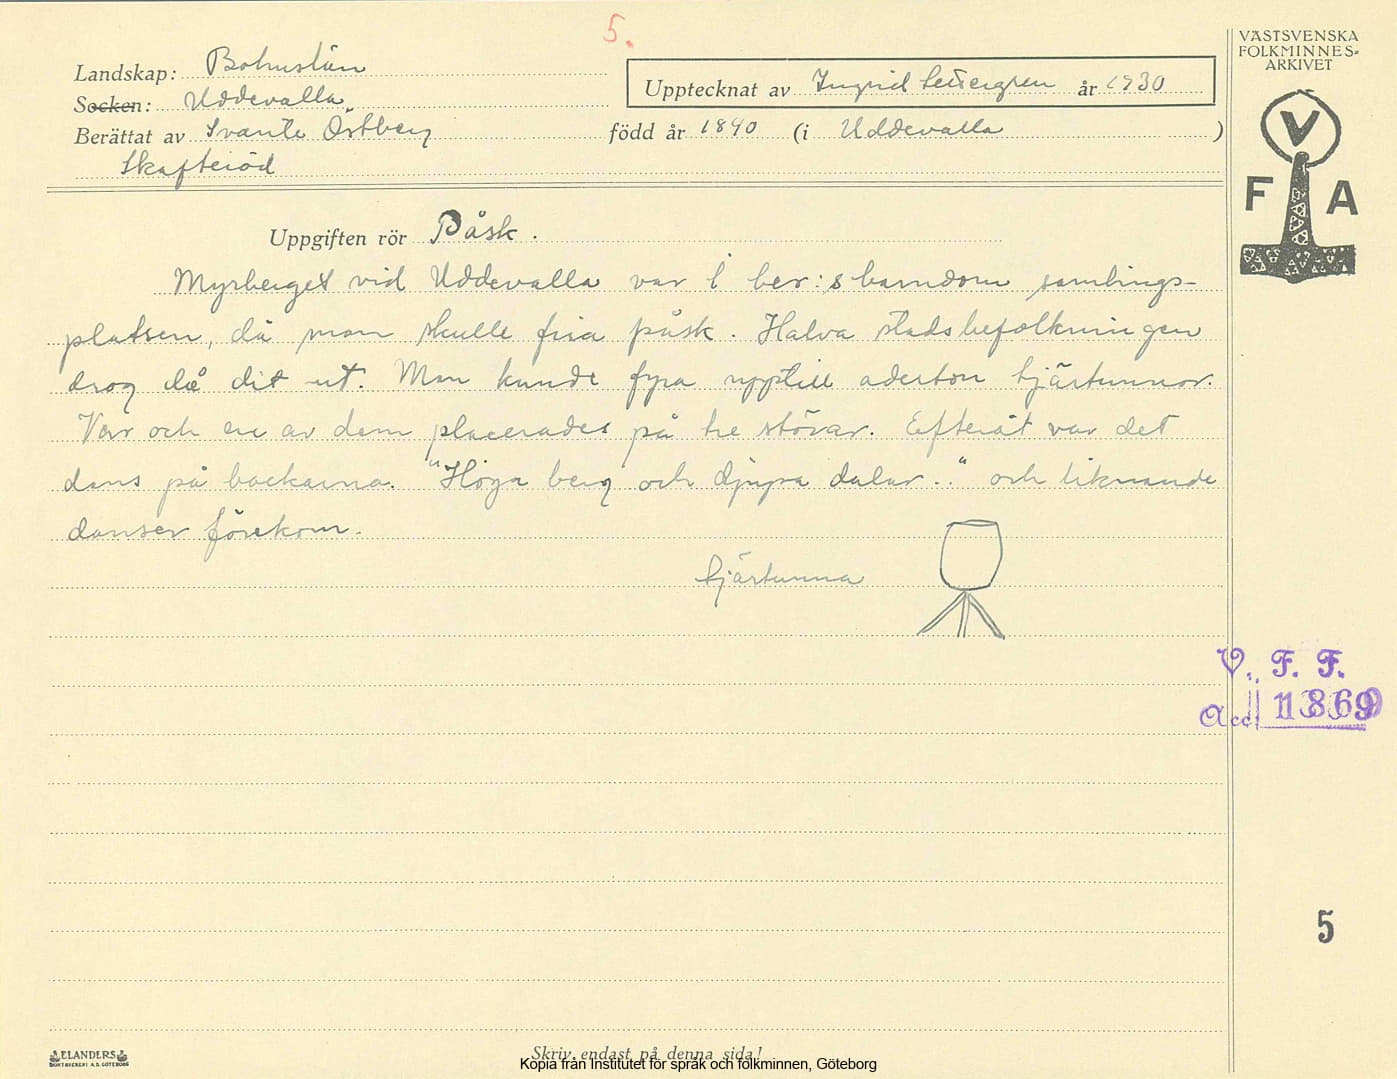 5.
VÄSTSVENSKA
FOLKMINNES-
ARKIVET
V
F A
Landskap: Bohuslän
Socken: Uddevalla
Upptecknat av Ingrid Settergren år 1930
Berättat av Svante Östberg född år 1890 (i Uddevalla )
Skafteröd
Uppgiften rör Påsk.
Myrberget vid Uddevalla var i ber:s barndom samlings-
platsen, då man skulle fira påsk. Halva stadsbefolkningen
drog då dit ut. Man kunde fyra upptill aderton tjärtunnor.
Var och en av dem placerades på tre störar. Efteråt var det
dans på backarna. "Höga berg och djupa dalar.." och liknande
danser förekom.
tjärtunna
V. F. F.
Acc. 1869
5
ELANDERS
BOKTRYCKERI A.B. GÖTEBORG
Skriv endast på denna sida!
Kopia från Institutet för språk och folkminnen, Göteborg